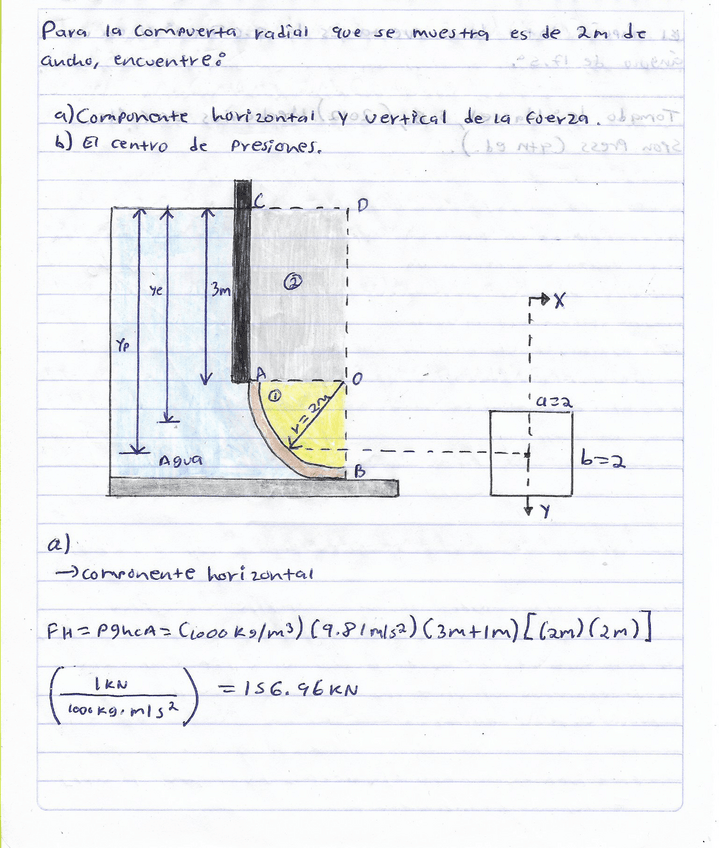 Para la compuerta radial que se muestra es de 2m de
ancho, encuentre:
a) Componente horizontal y vertical de la fuerza.
b) El centro de Presiones.
C
D
②
yc
3m
X
Yp
A
O
①
a=2
r=2m
b=2
Agua
B
Y
a)
→componente horizontal
FH = ρghcA = (1000 kg/m³) (9.81m/s²) (3m+1m) [(2m)(2m)]
(1KN / 1000 kg.m/s²) = 156.96 KN